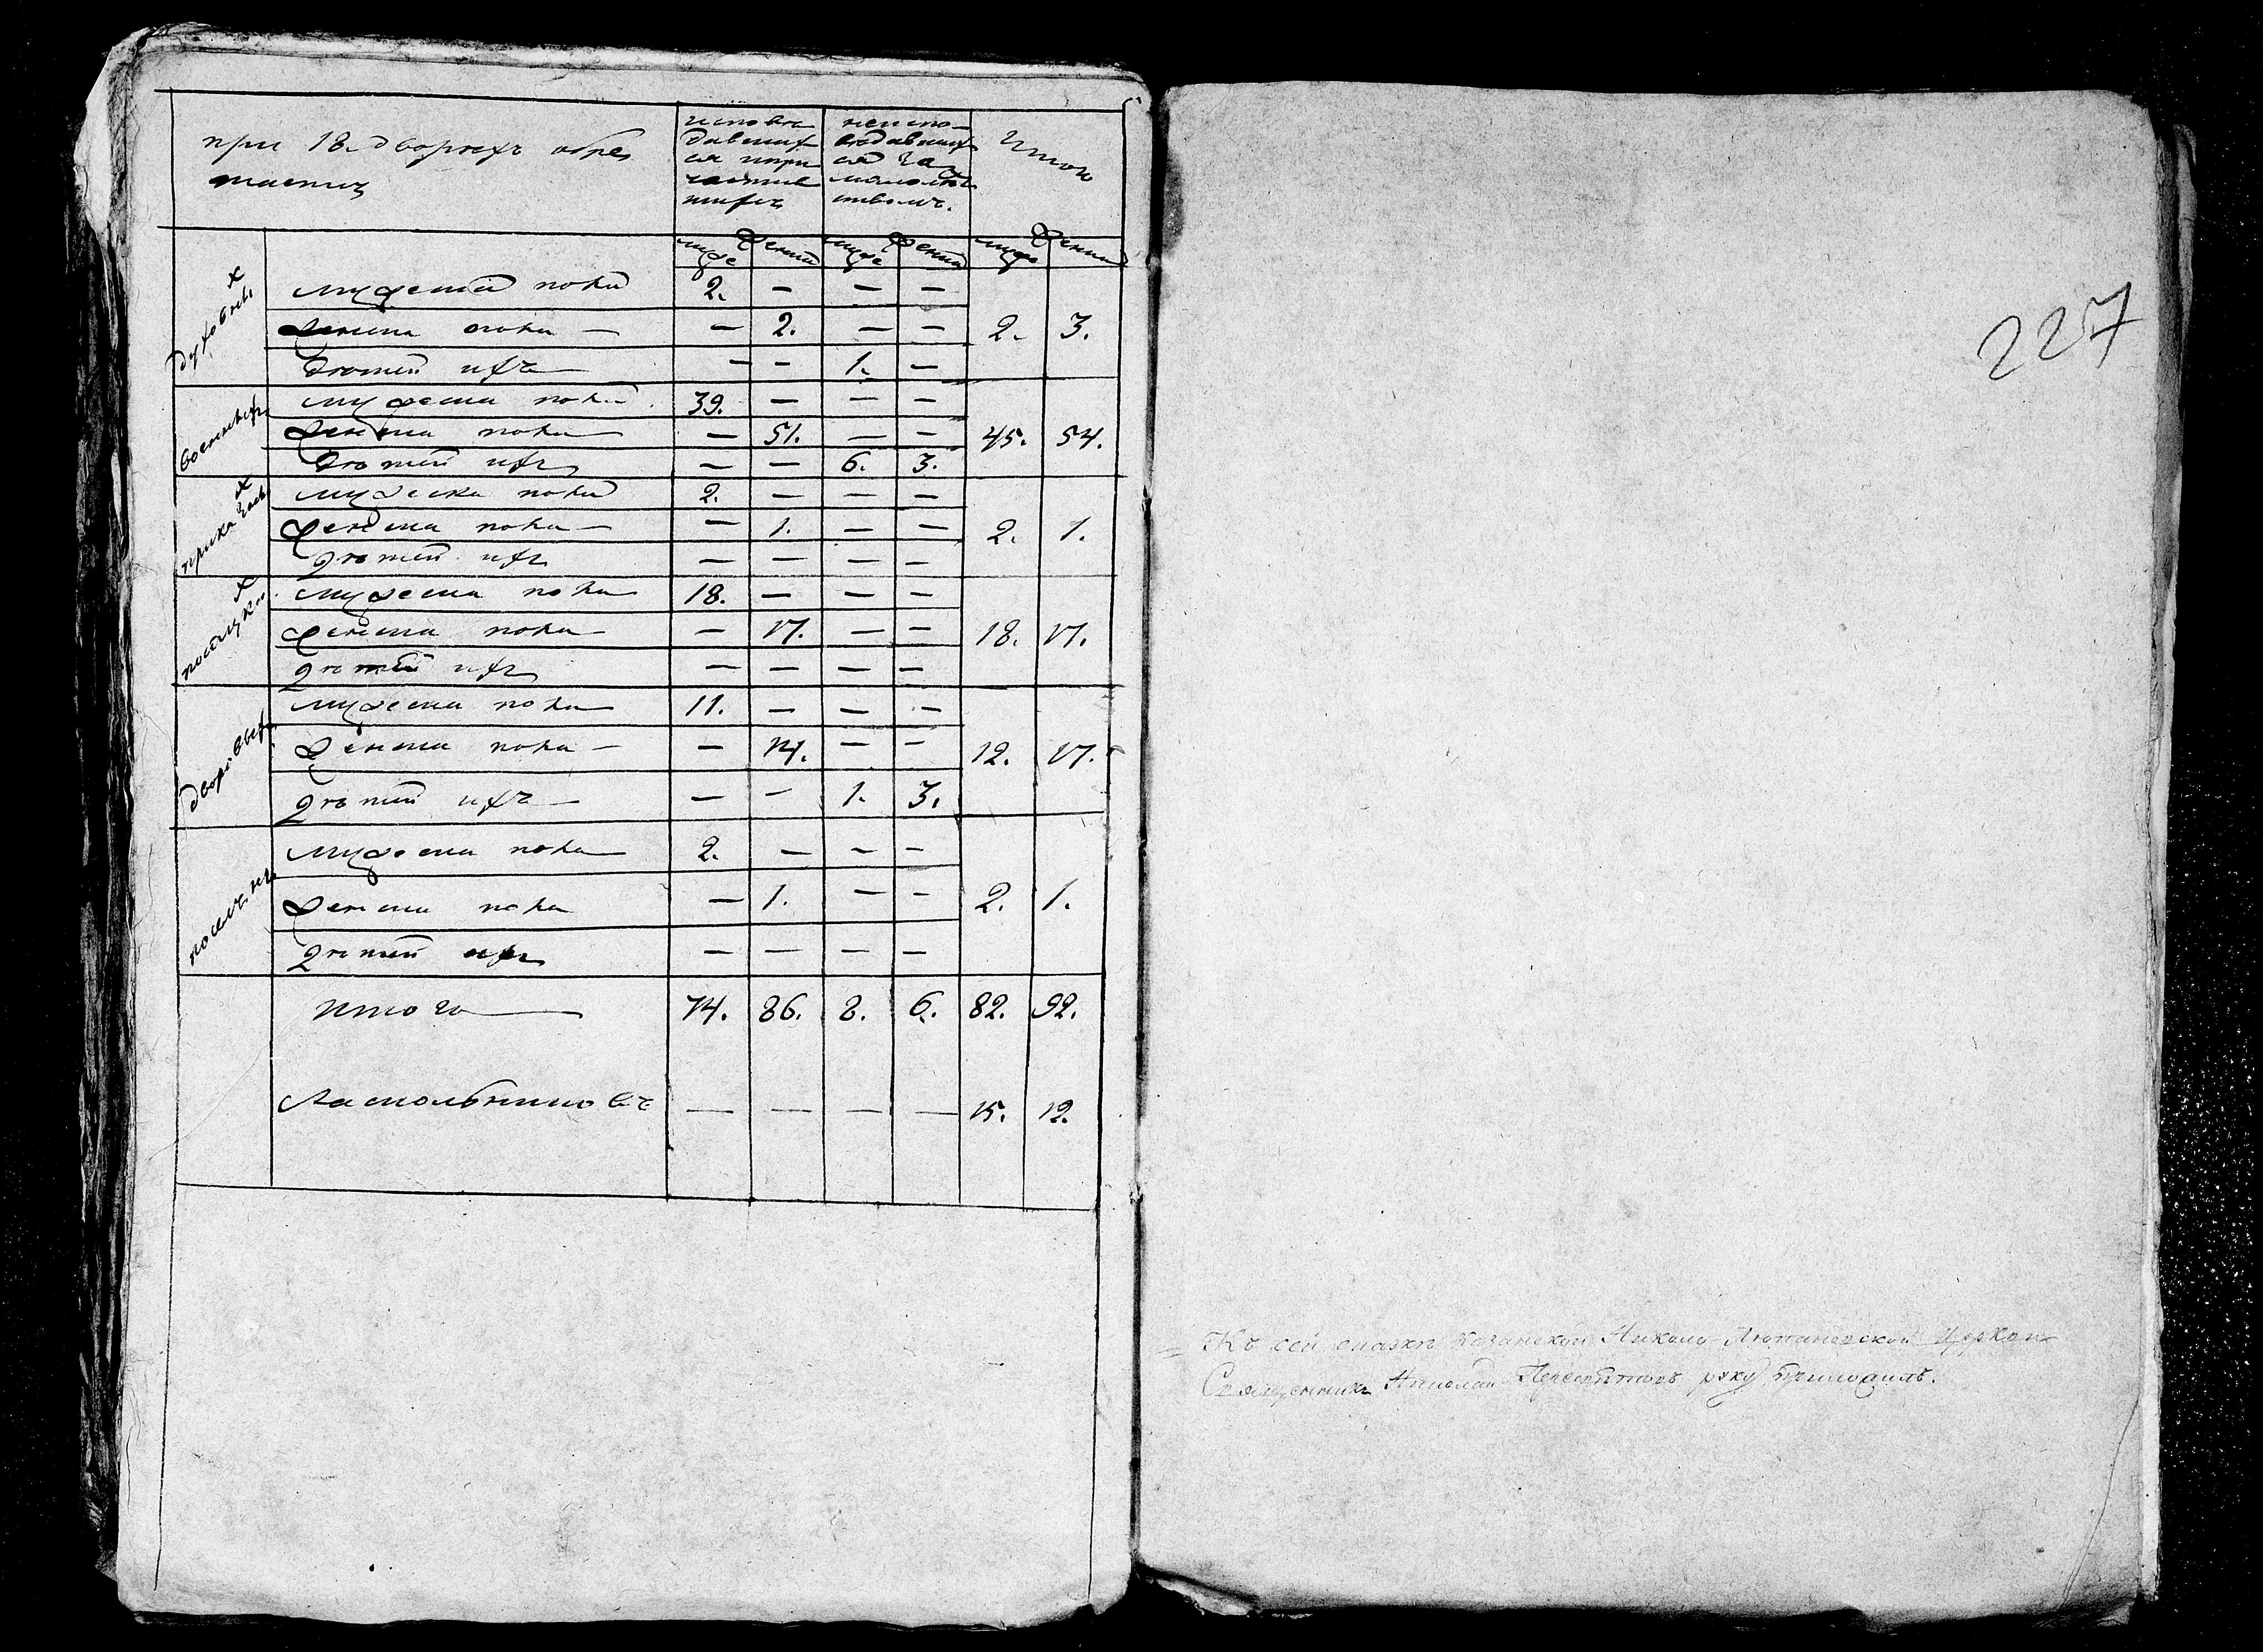 при 18. дворехъ обре
таетца
исповѣ
давших
ся и при
частив
шихъ
неиспо-
ведавших
ся за
малолѣт
ствомъ.
Итого
муже
женска
муже
женска
муже
женска
духовных
мужеска пола 2. — — —
женска пола — — 2. — —
детей ихъ — — 1. —
2. 3.
военных
мужеска пола 39. — — —
женска пола — 51. — —
детей ихъ — — 6. 3.
45. 54.
приказных
мужеска пола 2. — — —
женска пола — — 1. — —
детей ихъ — — — —
2. 1.
посацких
мужеска пола 18. — — —
женска пола — 17. — —
детей ихъ — — — —
18. 17.
дворовых
мужеска пола 11. — — —
женска пола — — 14. — —
детей ихъ — — — 1. 3.
12. 17.
мужеска пола 2. — — —
женска пола — 1. — —
детей ихъ — — — —
2. 1.
итого — 74. 86. 8. 6. 82. 92.
Раскольниковъ — — — — 15. 12.
227
Къ сей сказкѣ Казанской Николо Церкви
Священникъ Николай руку приложилъ.